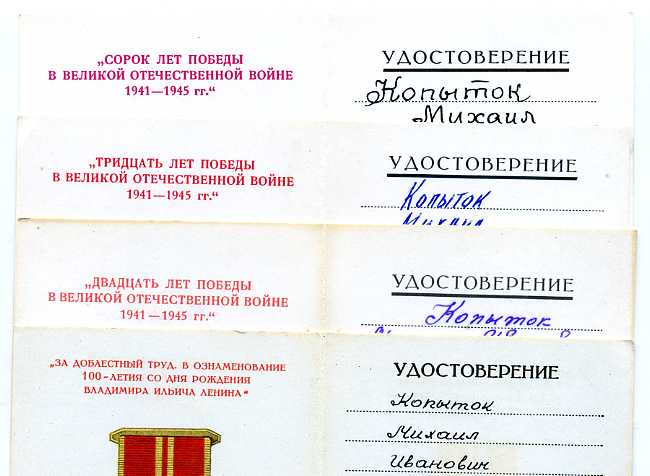 „СОРОК ЛЕТ ПОБЕДЫ
В ВЕЛИКОЙ ОТЕЧЕСТВЕННОЙ ВОЙНЕ
1941—1945 гг.“
УДОСТОВЕРЕНИЕ
Копыток
Михаил
„ТРИДЦАТЬ ЛЕТ ПОБЕДЫ
В ВЕЛИКОЙ ОТЕЧЕСТВЕННОЙ ВОЙНЕ
1941—1945 гг.“
УДОСТОВЕРЕНИЕ
Копыток
Михаил
„ДВАДЦАТЬ ЛЕТ ПОБЕДЫ
В ВЕЛИКОЙ ОТЕЧЕСТВЕННОЙ ВОЙНЕ
1941—1945 гг.“
УДОСТОВЕРЕНИЕ
Копыток
„ЗА ДОБЛЕСТНЫЙ ТРУД. В ОЗНАМЕНОВАНИЕ
100-ЛЕТИЯ СО ДНЯ РОЖДЕНИЯ
ВЛАДИМИРА ИЛЬИЧА ЛЕНИНА“
УДОСТОВЕРЕНИЕ
Копыток
Михаил
Иванович